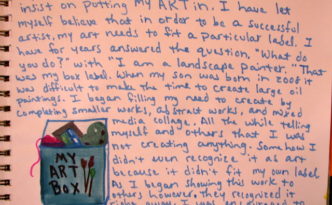 insist on putting MY ART in. I have let
myself believe that in order to be a successful
artist, my art needs to fit a particular label. I
have for years answered the question, "What do
you do?" with "I am a landscape painter." That
was my box label. When my son was born in 2001 it
was difficult to make the time to create large oil
paintings. I began filling my need to create by
completing smaller works, abstract works, and mixed
media collage. All the while telling
myself and others that I was
not creating anything. Somehow I
didn't even recognize it as art
because it didn't fit my own label
As I began showing this work to
others however, they recognized it
right away. I was
MY
ART
BOX